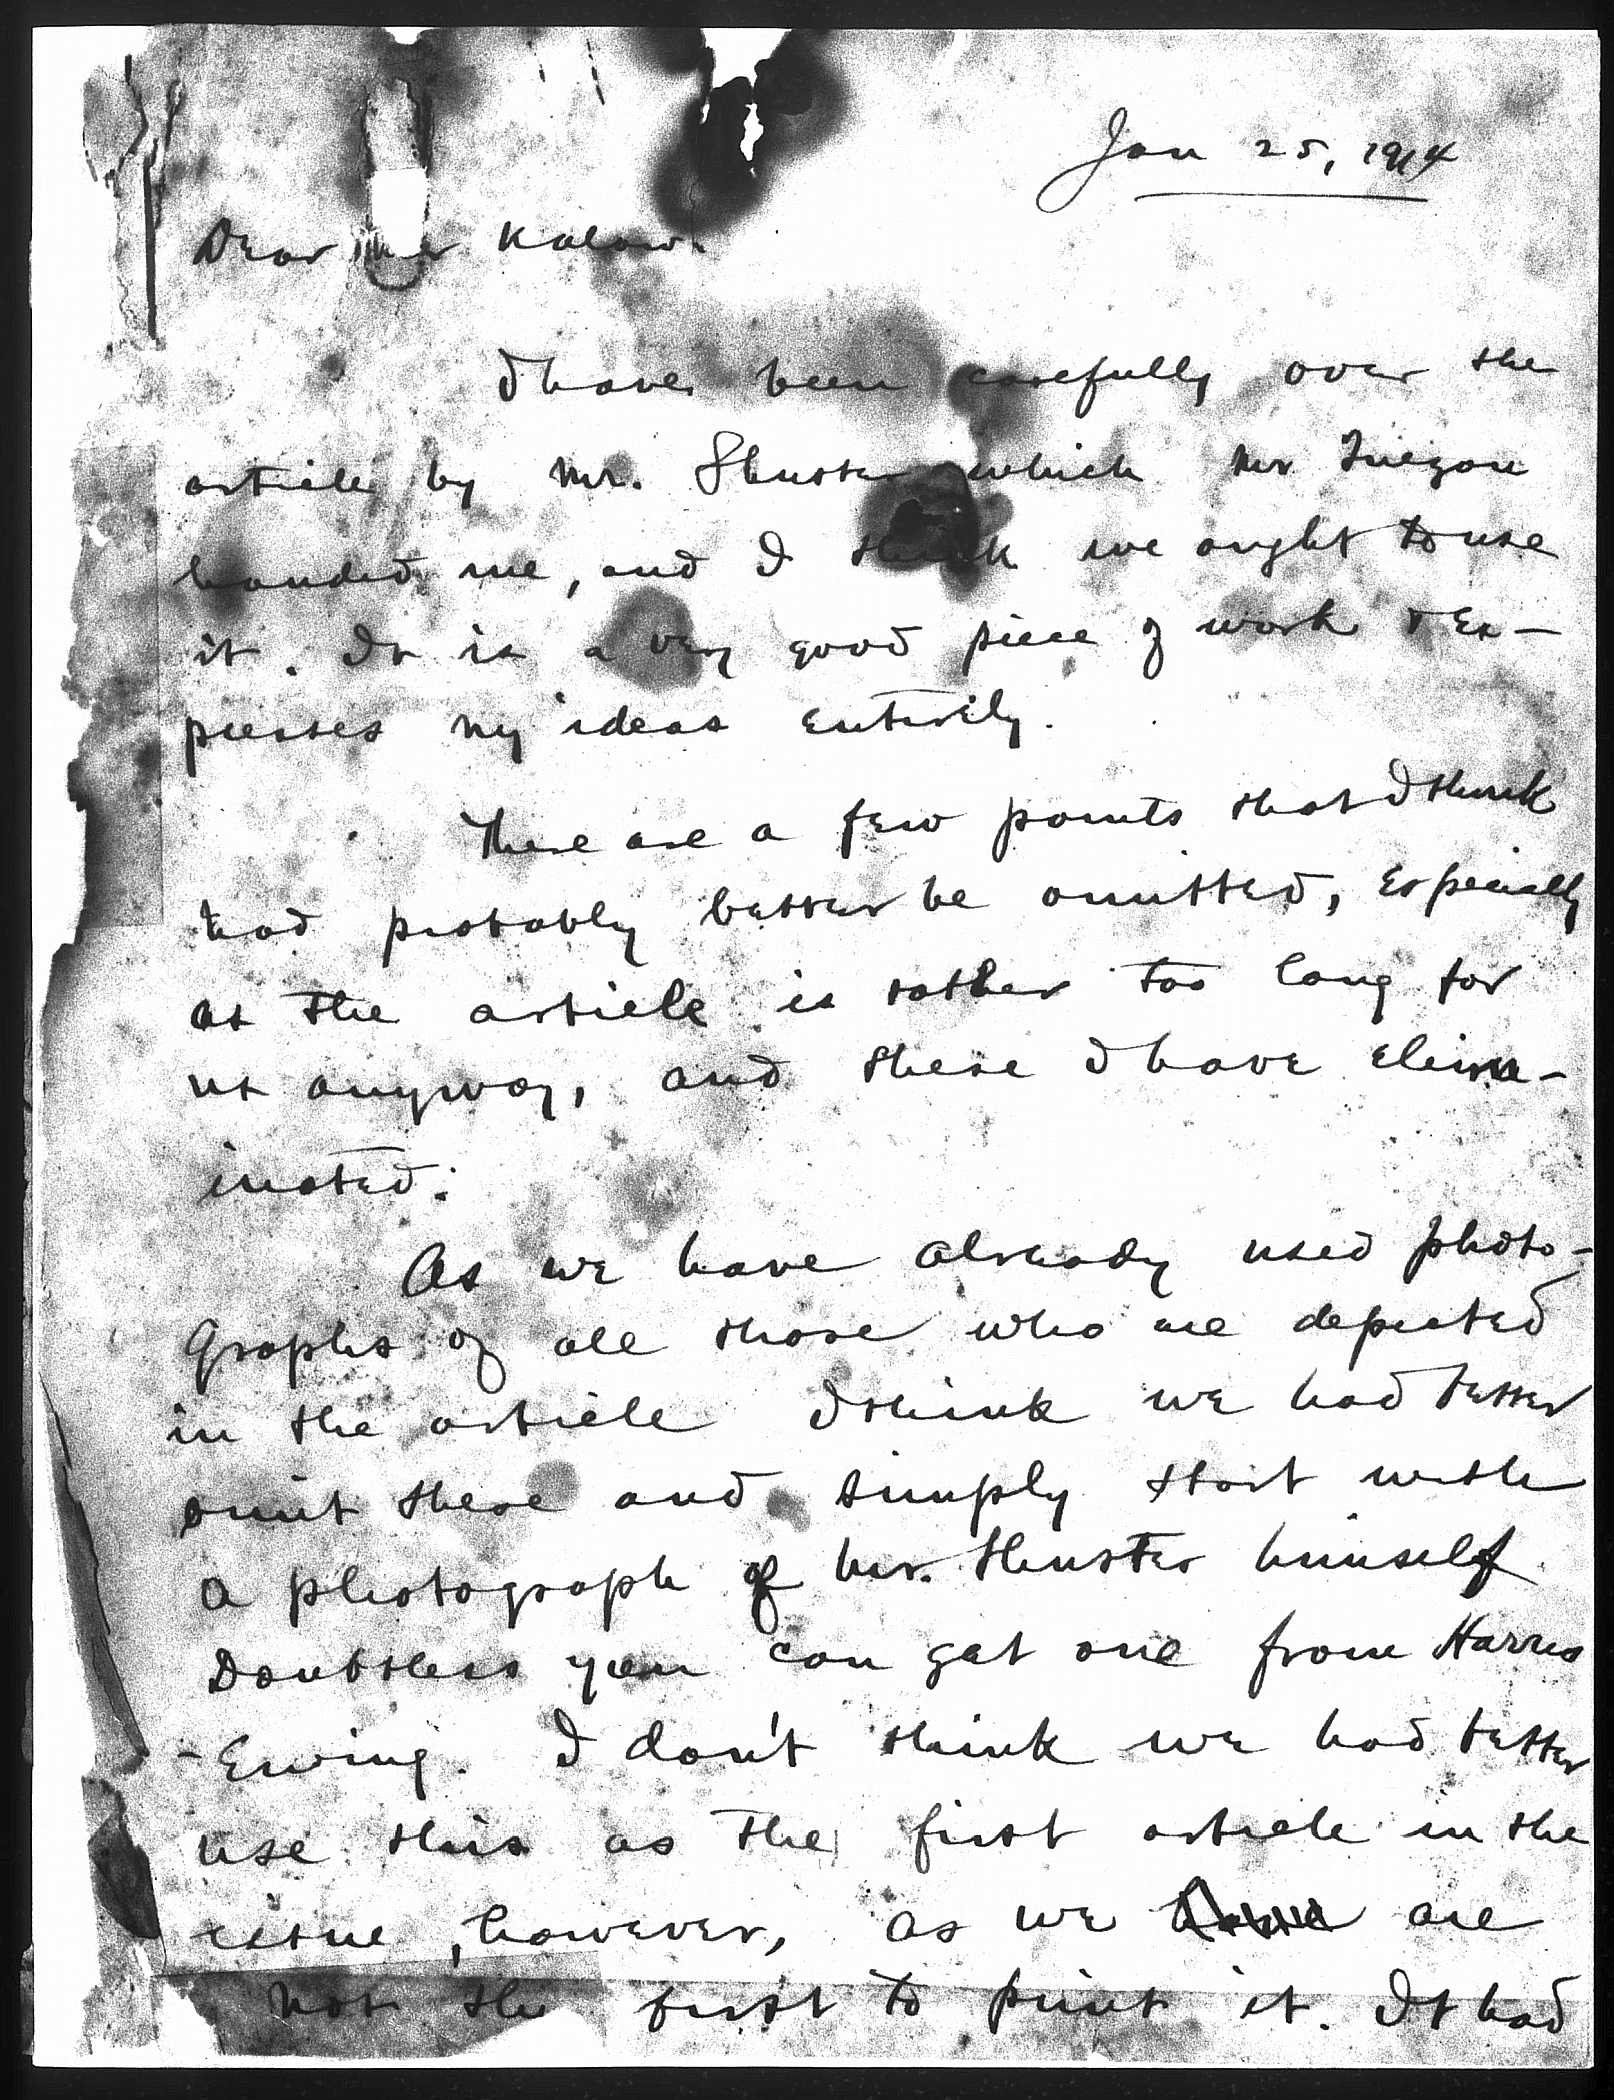 Jan 25, 1914
Dear Mr Kalaw.
I have been carefully over the
article by Mr. Shuster which Mr Quezon
handed me, and I think we ought to use
it. It is a very good piece of work & ex-
presses my ideas entirely.
There are a few points that I think
had probably better be omitted, especially
as the article is rather too long for
us anyway, and these I have elim-
inated.
As we have already used photo-
graphs of all those who are depicted
in the article I think we had better
omit these and simply start with
a photograph of Mr. Shuster himself
Doubtless you can get one from Harris
- Ewing. I don't think we had better
use this as the first article in the
issue, however, as we are
not the first to print it. It had